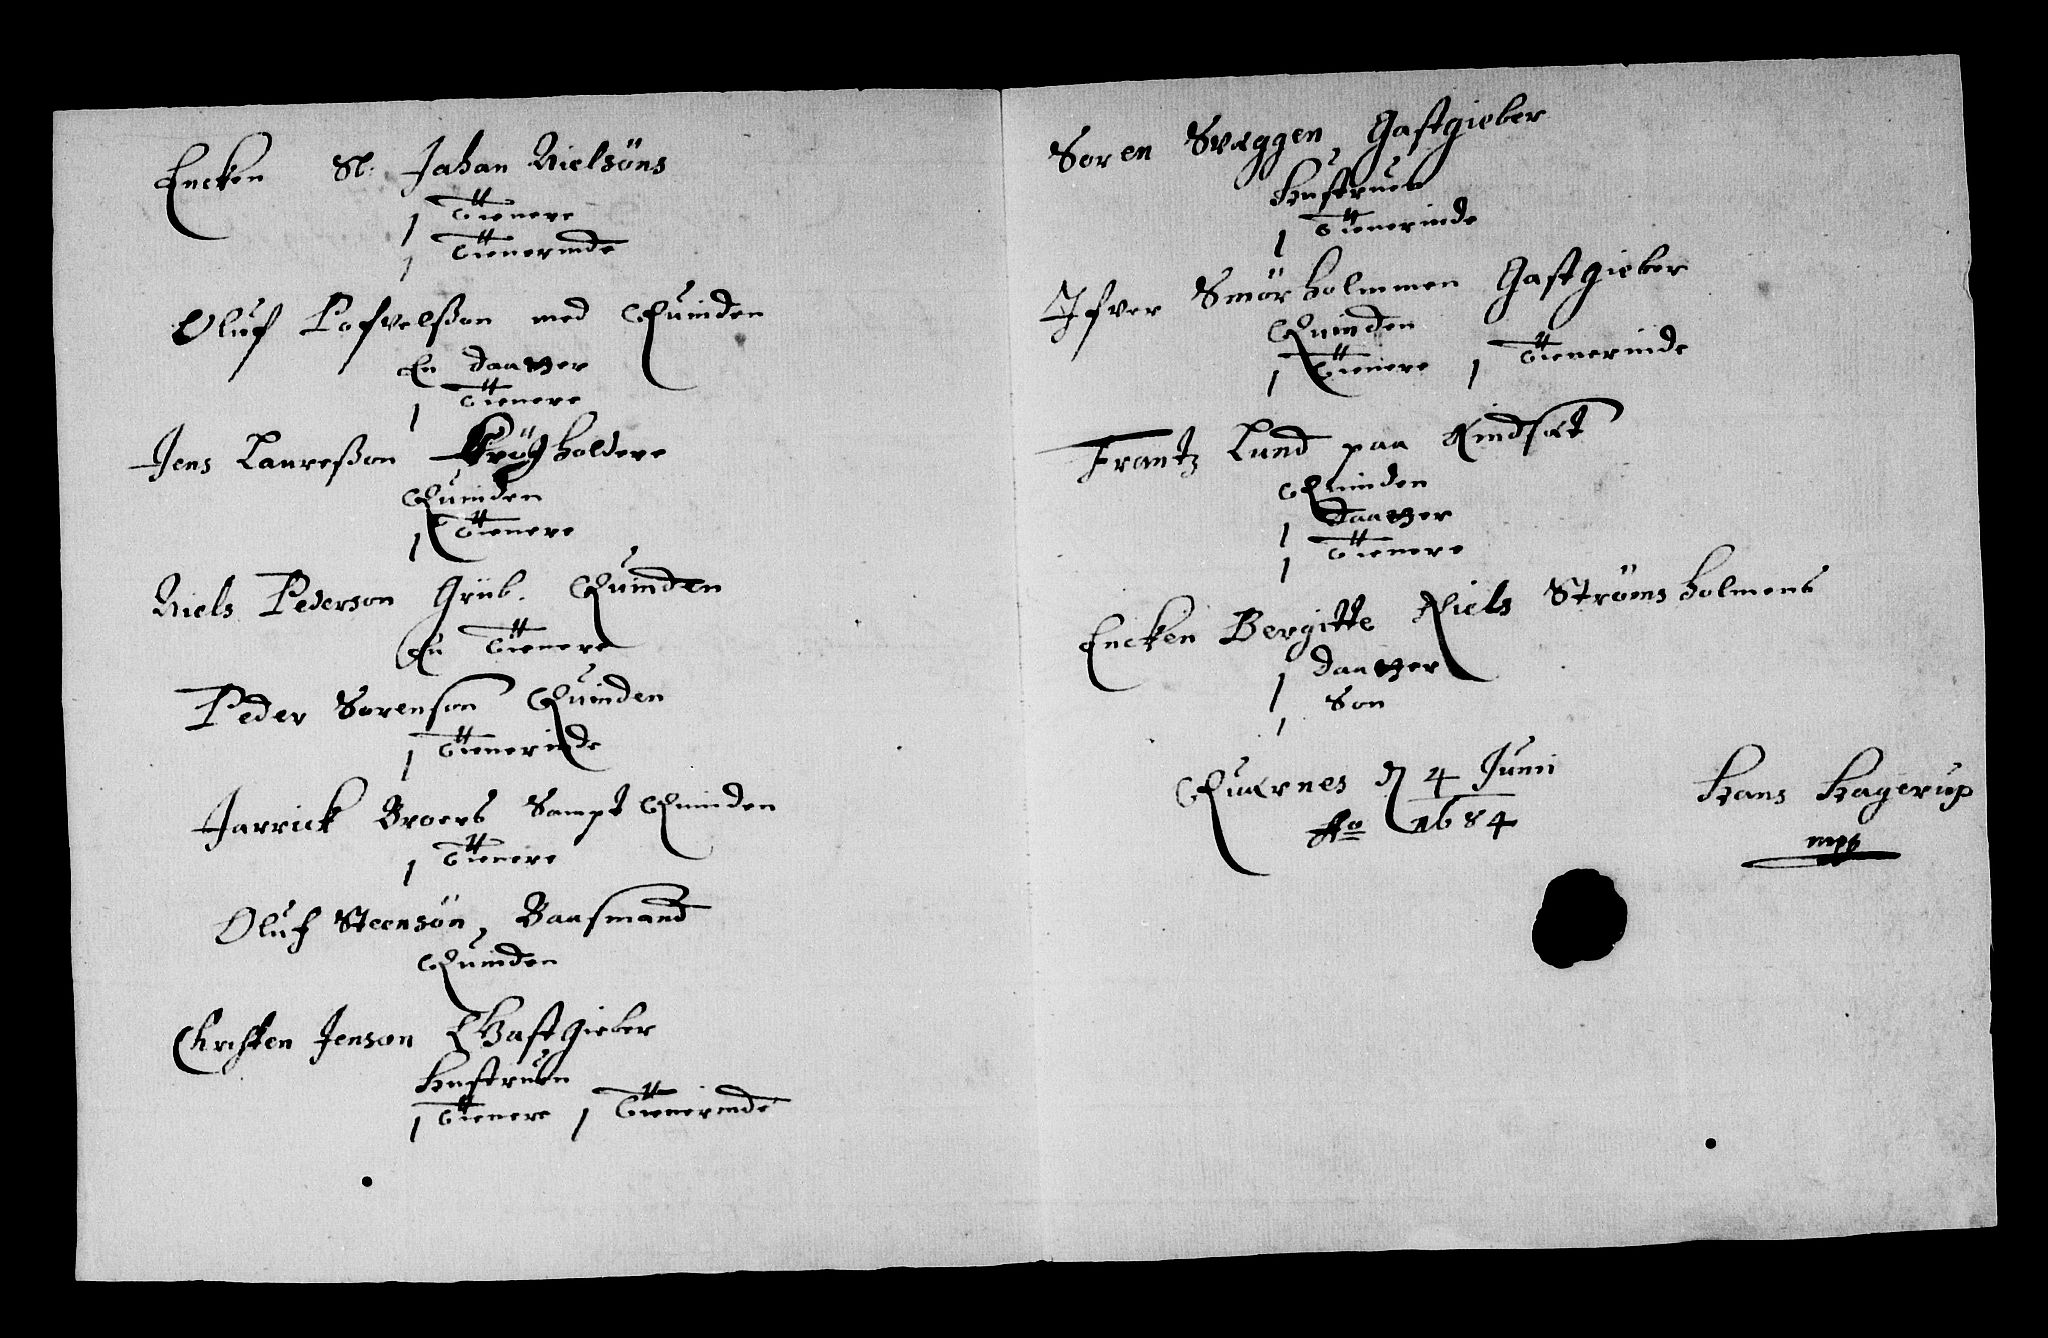 Encken Sl. Jahan Nielsöns
1 Tienere
1 Tienerinde
Oluf Pofvelßon med Quinden
En daatter
1 Tienere
Jens Laureßon Krögholdere
Quinden
1 Tienere
Niels Pederson Grüb. Quinden
En Tienere
Peder Sorenson Quinden
1 Tienerinde
Jarrick Broers Sampt Quinden
1 Tienere
Oluf Steensön, Baasmand
Quinden
Christen Jenson Gastgieber
Hustruen
1 Tienere 1 Tienerinde
Soren Svæggen, Gastgieber
Hustrues
1 Tienerinde
Ifver Smörholmmen Gastgieber
Quinden
1 Tienere 1 Tienerinde
Frantz Lund paa Rindsæt
Quinden
1 daatter
1 Tienere
Encken Bergitte Niels Strömsholmens
1 daatter
1 Son
Quærnes d 4 Junii
Ao 1684
Hans Hagerup
mpp